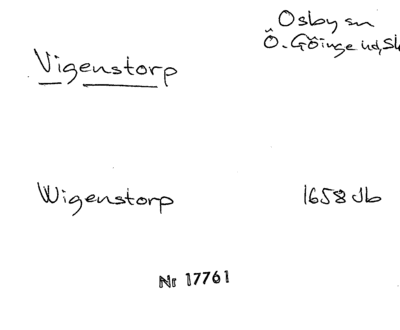 Osby sn
Vigenstorp
Ö. Göinge hd, Sk
Wigenstorp 1658 Jb
Nr 17761